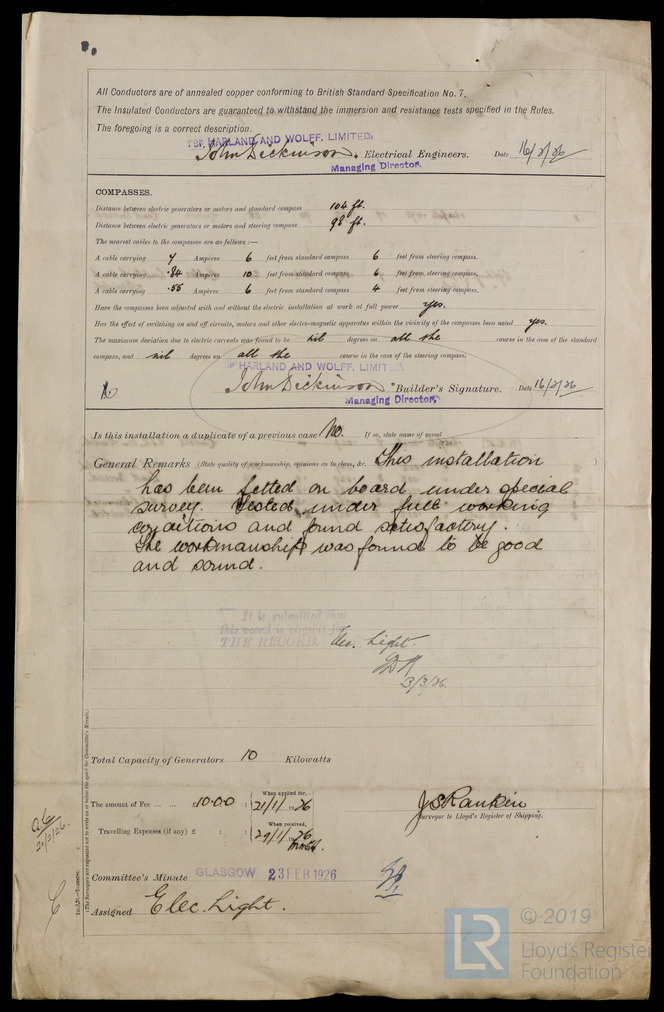 All Conductors are of annealed copper conforming to British Standard Specification No. 7.
The Insulated Conductors are guaranteed to withstand the immersion and resistance tests specified in the Rules.
The foregoing is a correct description.
HARLAND AND WOLFF, LIMITED,
John Dickinson. Electrical Engineers. Date 16/2/26
Managing Director.
COMPASSES.
Distance between electric generators or motors and standard compass 104 ft.
Distance between electric generators or motors and steering compass 98 ft.
The nearest cables to the compasses are as follows :—
A cable carrying 7 Ampères 6 feet from standard compass 6 feet from steering compass.
A cable carrying .34 Ampères 10 feet from standard compass 6 feet from steering compass.
A cable carrying .55 Ampères 6 feet from standard compass 4 feet from steering compass.
Have the compasses been adjusted with and without the electric installation at work at full power yes.
Has the effect of switching on and off circuits, motors and other electro-magnetic apparatus within the vicinity of the compasses been noted yes.
The maximum deviation due to electric currents was found to be nil degrees on all the course in the case of the standard
compass, and nil degrees on all the course in the case of the steering compass.
HARLAND AND WOLFF, LIMITED.
John Dickinson Builder's Signature. Date 16/2/26
Managing Director.
Is this installation a duplicate of a previous case No. If so, state name of vessel
General Remarks (State quality of workmanship, opinions as to class, &c. This installation )
has been fitted on board under special
survey. Tested under full working
conditions and found satisfactory.
The workmanship was found to be good
and sound.
It is submitted that
this vessel is eligible for
THE RECORD. Elec. Light.
3/3/26.
Total Capacity of Generators 10 Kilowatts
The amount of Fee ... ... £10.0.0 : When applied for, 21/1/1926
Travelling Expenses (if any) £ : : When received, 29/1/1926
J S Rankin
Surveyor to Lloyd's Register of Shipping.
Committee's Minute GLASGOW 23 FEB 1926
Assigned Elec. Light.
20/2/26.
(The Surveyors are requested not to write on or below the space for Committee's Minute.)
LR © 2019
Lloyd's Register
Foundation